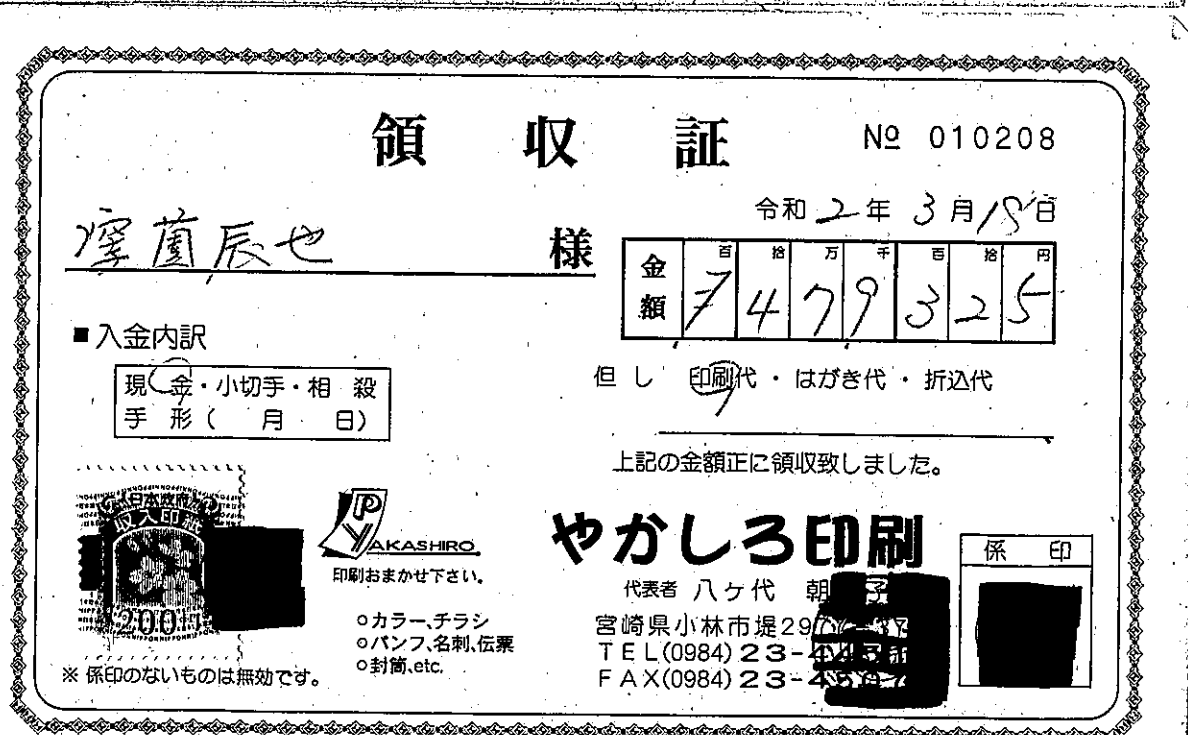 領収証 № 010208
令和 2年 3月 18日
窪薗辰也 様
金額 百 拾 万 千 百 拾 円
¥ 4 7 9 3 2 5
■入金内訳
現金・小切手・相殺
手形( 月 日)
但し 印刷代・はがき代・折込代
上記の金額正に領収致しました。
日本政府
収入印紙
200円
YAKASHIRO
印刷おまかせ下さい。
○カラー、チラシ
○パンフ、名刺、伝票
○封筒、etc.
※ 係印のないものは無効です。
やかしろ印刷
代表者 八ヶ代 朝子
宮崎県小林市堤29
TEL(0984)23-
FAX(0984)23-
係印